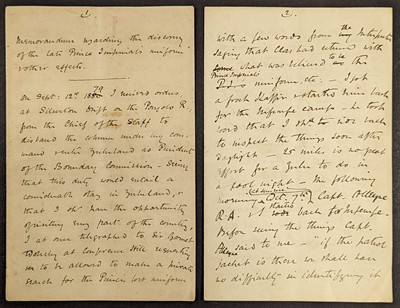 1.
Memorandum regarding the discovery
of the late Prince Imperial's uniform
& other effects.
On Sept: 12th 1879 I received orders
at Silverton Drift on the Pongolo R.
from the Chief of the Staff to
disband the column under my com-
mand & enter Zululand as President
of the Boundary Commission. Seeing
that this duty would entail a
considerable stay in Zululand, &
that I shd have the opportunity
of visiting any part of the country,
I at once telegraphed to Sir
at Conference Hill requesting
to be allowed to make a private
search for the Prince's lost uniform
2.
with a few words from the Interpreter
saying that had returned with
what was believed to be the
Prince Imperial's
uniform, etc. I got
a fresh Kaffir & started him back
for the camp - he took
word that I shd ride back
to inspect the things soon after
daylight - 25 miles is no great
effort for a Zulu to do in
a night. The following
morning Capt. Alleyne
R.A. & I started back for
Before seeing the things Capt.
Alleyne said to me - "if the patrol
jacket is there we shall have
no difficulty in identifying it